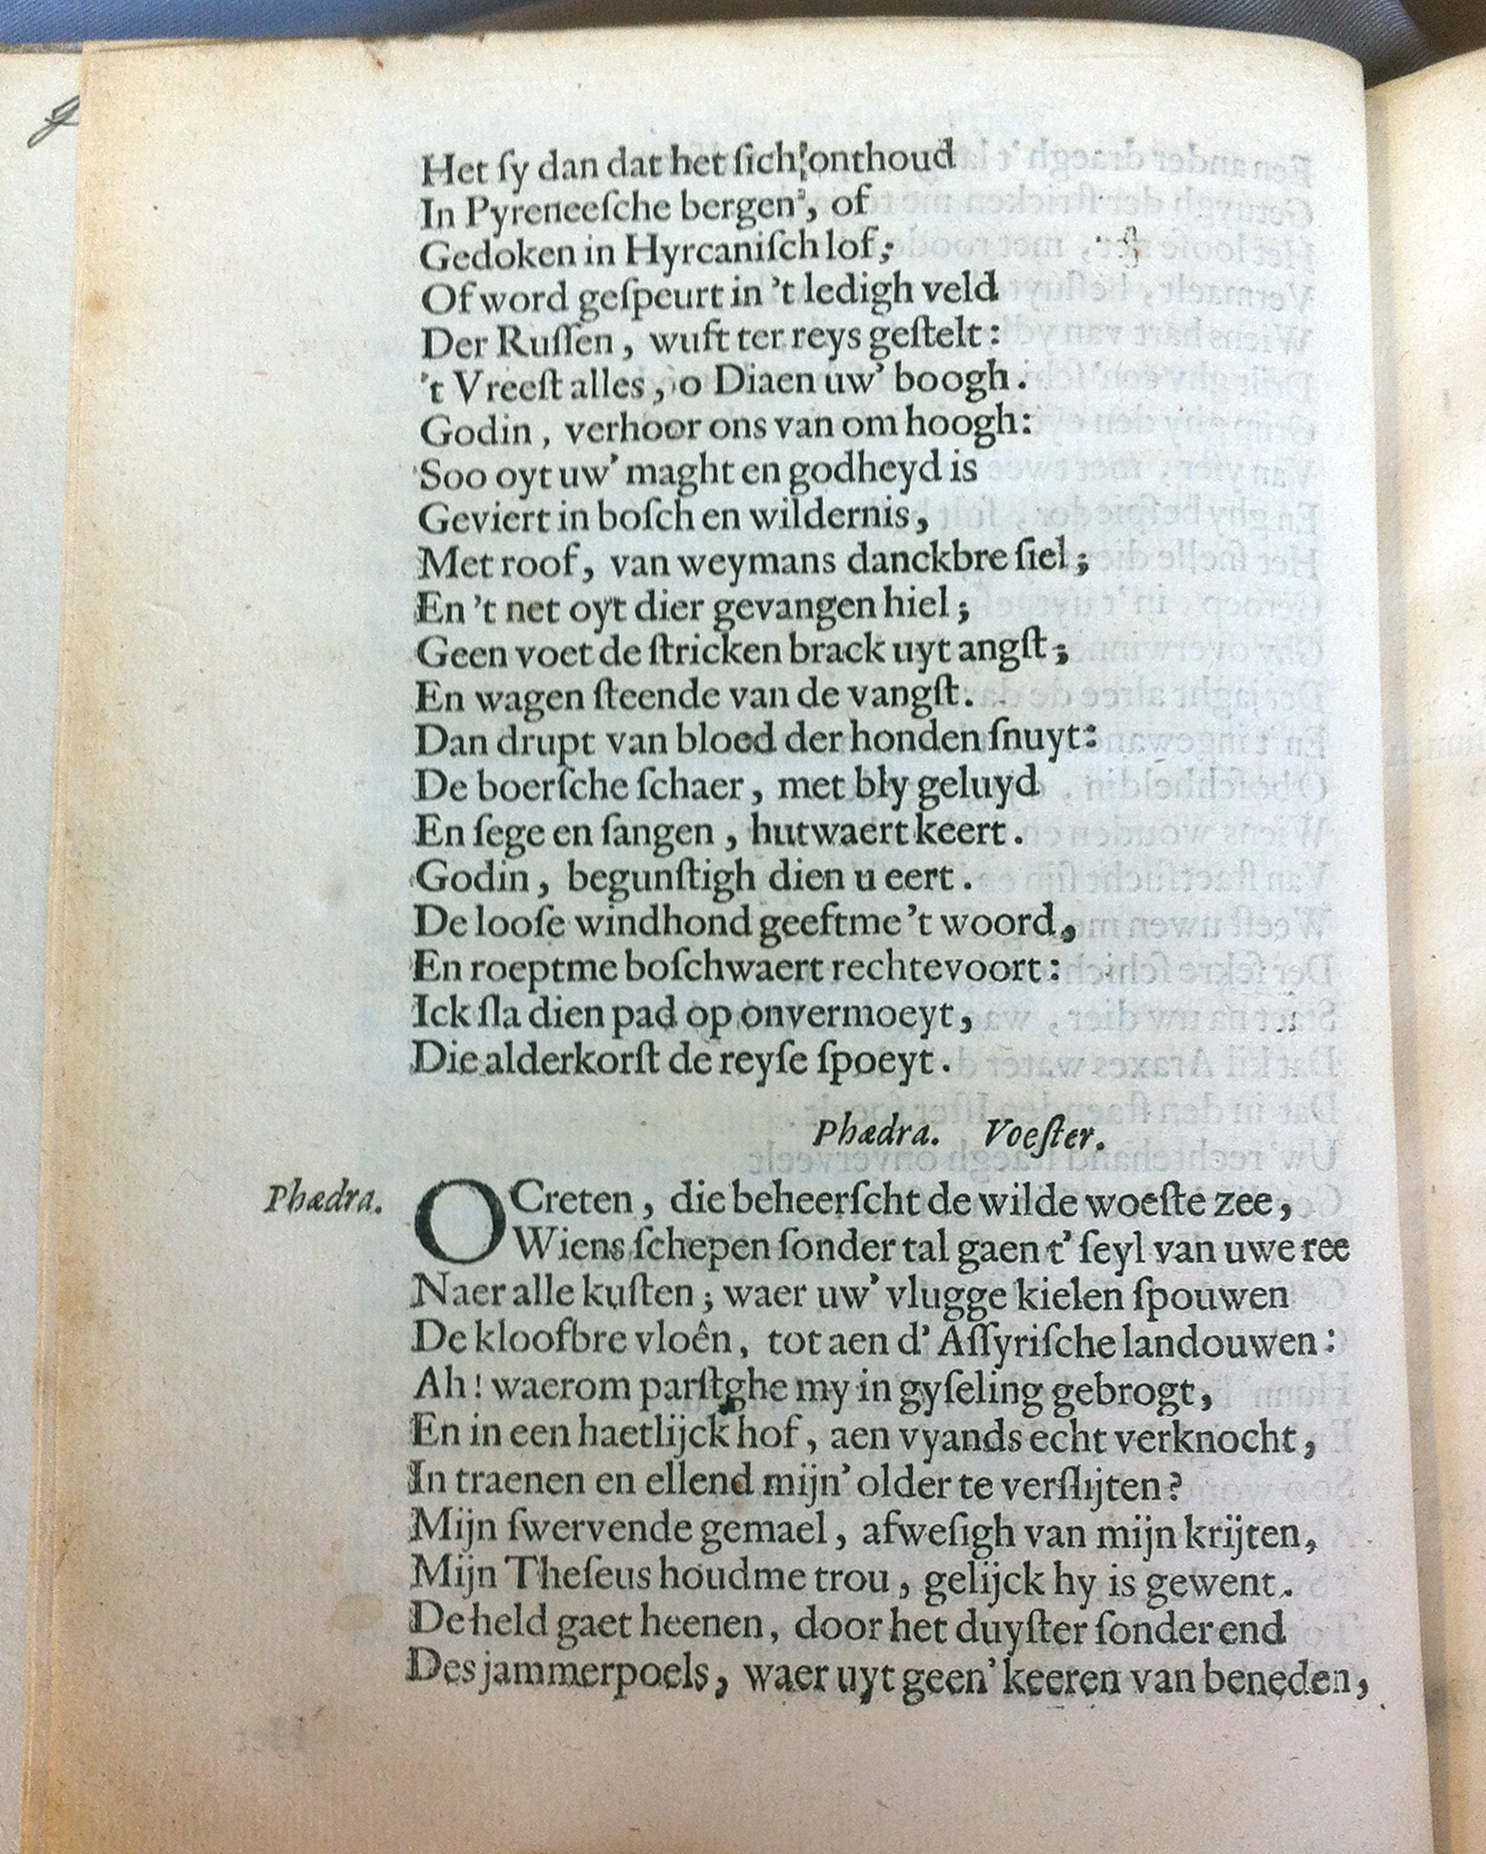 Het ſy dan dat het ſich onthoud
In Pyreneeſche bergen, of
Gedoken in Hyrcaniſch lof;
Of word geſpeurt in 't ledigh veld
Der Ruſſen, wuft ter reys geſtelt:
't Vreeſt alles, o Diaen uw' boogh.
Godin, verhoor ons van om hoogh:
Soo oyt uw' maght en godheyd is
Geviert in boſch en wildernis,
Met roof, van weymans danckbre ſiel;
En 't net oyt dier gevangen hiel;
Geen voet de ſtricken brack uyt angſt;
En wagen ſteende van de vangſt.
Dan drupt van bloed der honden ſnuyt:
De boerſche ſchaer, met bly geluyd
En ſege en ſangen, hutwaert keert.
Godin, begunſtigh dien u eert.
De looſe windhond geeftme 't woord,
En roeptme boſchwaert rechtevoort:
Ick ſla dien pad op onvermoeyt,
Die alderkorſt de reyſe ſpoeyt.
Phædra. Voeſter.
Phædra. O Creten, die beheerſcht de wilde woeſte zee,
Wiens ſchepen ſonder tal gaen t' ſeyl van uwe ree
Naer alle kuſten; waer uw' vlugge kielen ſpouwen
De kloofbre vloên, tot aen d' Aſſyriſche landouwen:
Ah! waerom parſtghe my in gyſeling gebrogt,
En in een haetlijck hof, aen vyands echt verknocht,
In traenen en ellend mijn' older te verſlijten?
Mijn ſwervende gemael, afweſigh van mijn krijten,
Mijn Theſeus houdme trou, gelijck hy is gewent.
De held gaet heenen, door het duyſter ſonder end
Des jammerpoels, waer uyt geen' keeren van beneden,